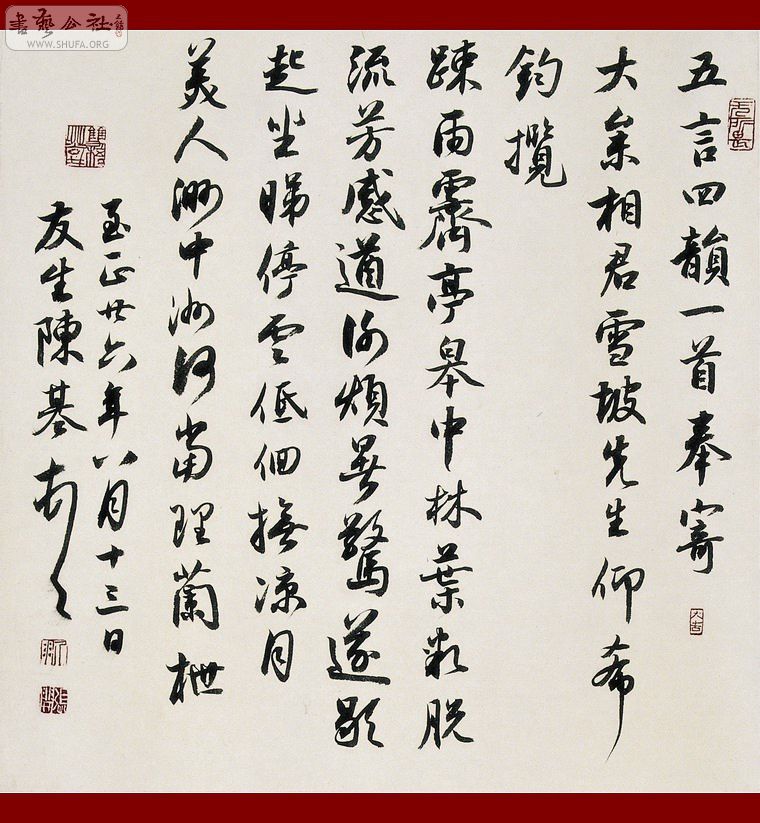 書藝公社
WWW.SHUFA.ORG
五言四韻一首奉寄
大叅相君雪坡先生仰希
鈞攬
踈雨霽亭皋中林葉脫
流芳感遒謝煩暑驚遂歇
起坐睇停雲低佪撫涼月
美人渺中洲何當理蘭枻
至正廿六年八月十三日
友生陳基